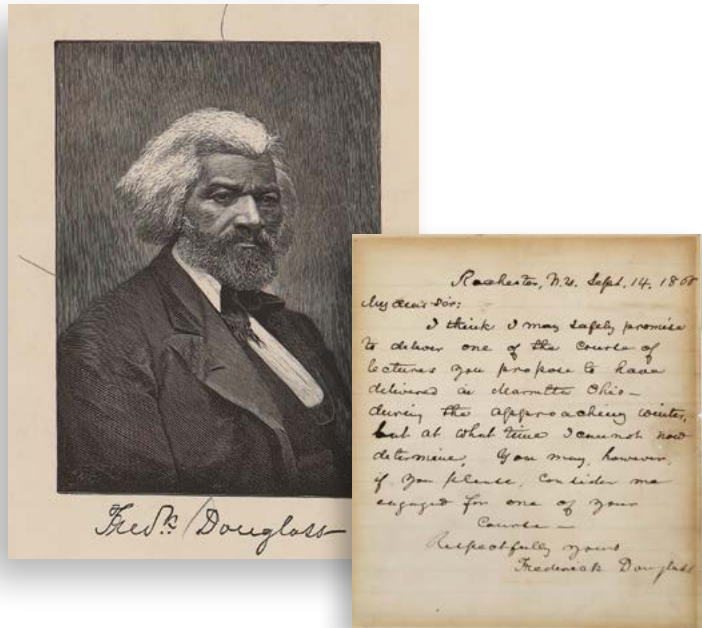 Fredk Douglass
Rochester, N.Y. Sept. 14. 186
My dear Sir:
I think I may safely promise
to deliver one of the course of
lectures you propose to have
delivered in Marietta Ohio—
during the approaching winter,
but at what time I cannot now
determine. You may, however,
if you please, consider me
engaged for one of your
Course —
Respectfully yours
Frederick Douglass